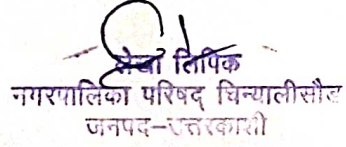 लेखा लिपिक
नगरपालिका परिषद् चिन्यालीसौड
जनपद-उत्तरकाशी